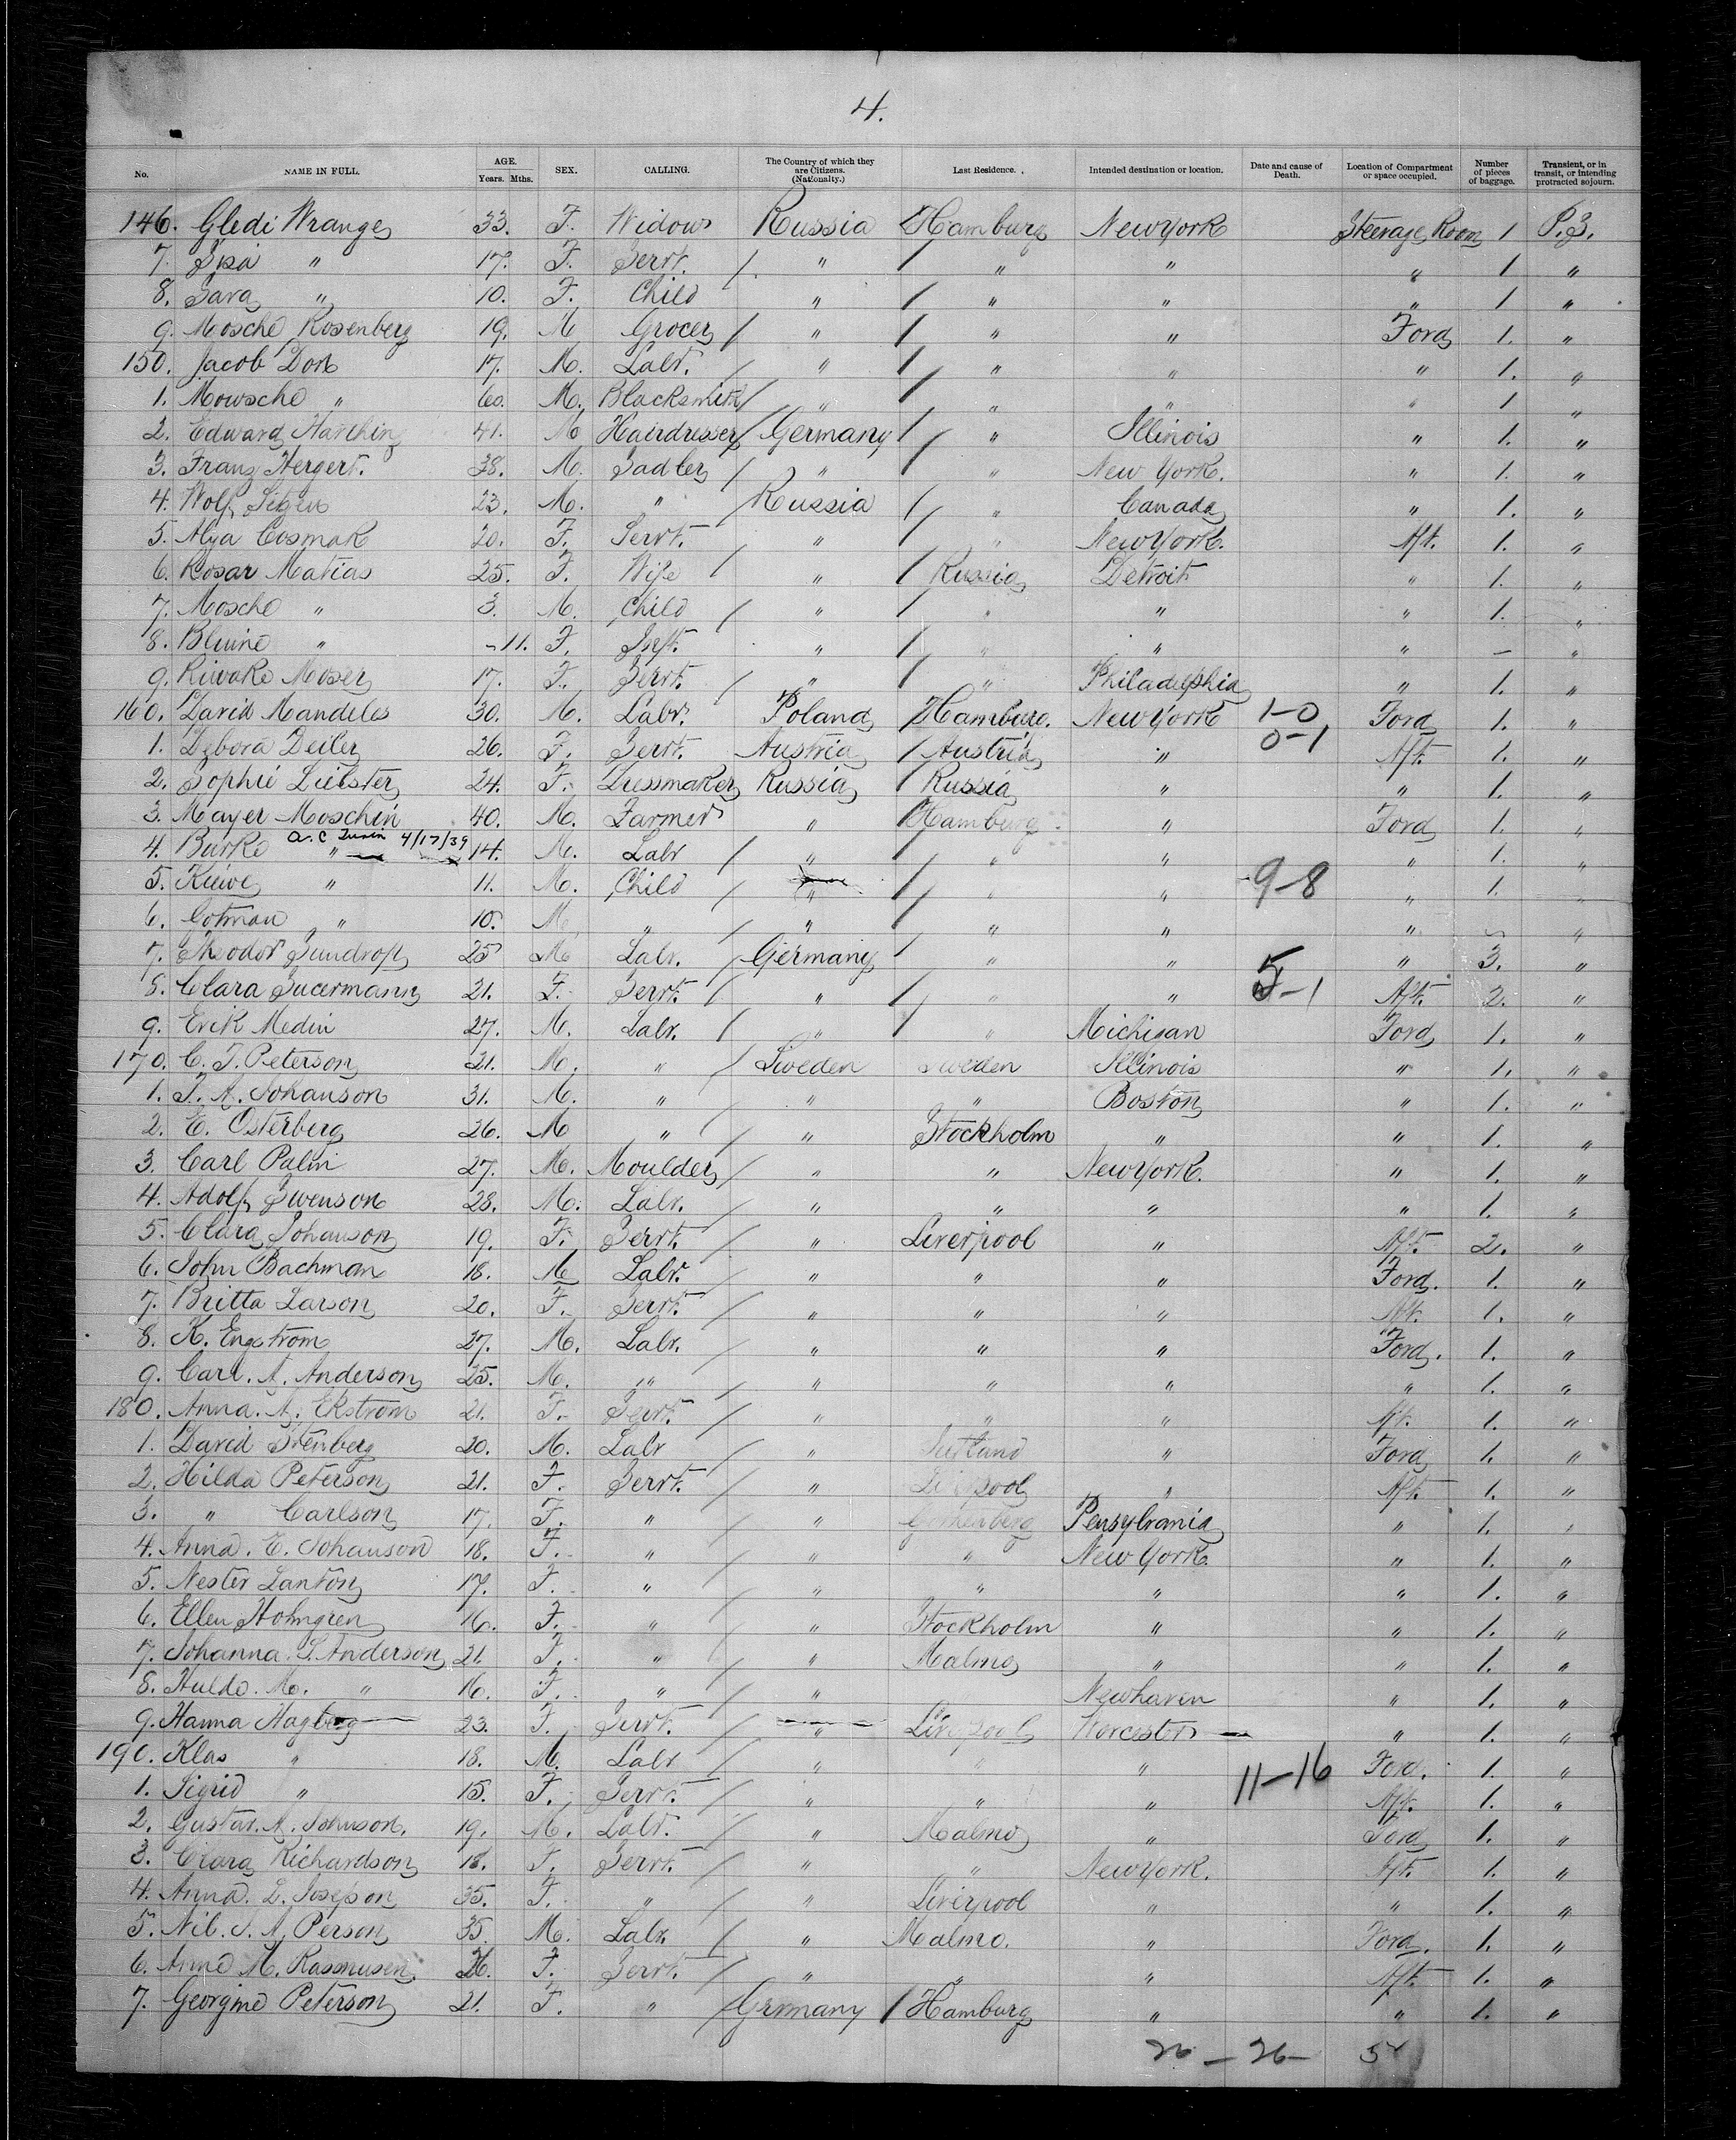 4.
No. NAME IN FULL. AGE. Years. Mths. SEX. CALLING. The Country of which they are Citizens. (Nationality.) Last Residence. Intended destination or location. Date and cause of Death. Location of Compartment or space occupied. Number of pieces of baggage. Transient, or in transit, or intending protracted sojourn.
146. Gledi Wrange 33. F. Widow Russia Hamburg New York Steerage Room 1 P.S.
7. " 17. F. Servt. / " / " " " 1 "
8. Sara " 10. F. Child " / " " " 1 "
9. Mosche Rosenberg 19. M Grocer / " / " " Ford 1. "
150. Jacob Dork 17. M. Labr. / " / " " " 1. "
1. Mowsche " 60. M. Blacksmith / " / " " " 1 "
2. Edward 41. M Hairdresser / Germany / " Illinois " 1. "
3. Franz Hergert. 38. M. Sadler / " / " New York. " 1. "
4. Wolf 23. M. " / Russia / " Canada " 1. "
5. Alya Cosmak 20. F. Servt. " / " New York. Aft. 1. "
6. Rosar Matias 25. F. Wife / " / Russia Detroit " 1. "
7. Mosche " 3. M. Child / " / " " " 1. "
8. Blume " 11. F. Inft. " / " " " – "
9. Riwake Moser 17. F. Servt. / " / " Philadelphia " 1. "
160. David Mandeles 30. M. Labr. Poland / Hamburg. New York 1-0 Ford 1. "
1. Debora Deiler 26. F. Servt. Austria / Austria " 0-1 Aft. 1. "
2. Sophie Liebster 24. F. Dressmaker Russia Russia " " 1. "
3. Mayer Moschin 40. M. Farmer " Hamburg " Ford 1. "
a.c 4/17/39
4. Burke " 14. M. Labr / " / " " " 1. "
5. " 11. M. Child / " / " " 9-8 " 1. "
6. Gotman " 10. M. " " / " " " "
7. Theodor 25 M Labr. Germany / " " " 3. "
8. Clara Sucermann 21. F. Servt. / " / " " 5-1 Aft. 2. "
9. Erik Medin 27. M. Labr. / " / " Michigan Ford 1. "
170. C. J. Peterson 21. M. " / Sweden Sweden Illinois " 1. "
1. J. A. Johanson 31. M. " / " " Boston " 1. "
2. E. Osterberg 26. M " / " Stockholm " " 1. "
3. Carl Palm 27. M. Moulder / " " New York. " 1. "
4. Adolf Swenson 28. M. Labr. / " " " " 1. "
5. Clara Johanson 19. F. Servt. / " Liverpool " Aft. 2. "
6. John Bachman 18. M Labr. / " " " Ford. 1. "
7. Britta Larson 20. F. Servt. / " " " Aft. 1. "
8. K. Engstrom 27. M. Labr. / " " " Ford. 1. "
9. Carl. A. Anderson 25. M. " / " " " " 1. "
180. Anna. A. Ekstrom 21. F. Servt. / " " " Aft. 1. "
1. David Stenberg 20. M. Labr / " " Ford 1. "
2. Hilda Peterson 21. F. Servt. / " Liverpool " Aft. 1. "
3. " Carlson 17. F. " / " Gothenberg Pensylvania " 1. "
4. Anna. E. Johanson 18. F. " / " " New York. " 1. "
5. Nester Lanton 17. F. " / " " " " 1. "
6. Ellen Holmgren 16. F. " / " Stockholm " " 1. "
7. Johanna. S. Anderson 21. F. " / " Malmo " " 1. "
8. Huldo. M. " 16. F. " / " Newhaven " 1. "
9. Hanna Hagberg 23. F. Servt. / " Liverpool Worcester " 1. "
190. Klas " 18. M. Labr / " " " Ford. 1. "
1. Sigrid " 15. F. Servt. / " " " 11-16 Aft. 1. "
2. Gustav. A. Johnson. 19. M. Labr. / " Malmo " Ford 1. "
3. Clara Richardson 18. F. Servt. / " " New York. Aft. 1. "
4. Anna. L. Josepson 35. F. " / " Liverpool " " 1. "
5. Nil. J. A. Person 35. M. Labr. / " Malmo. " Ford. 1. "
6. Anna M. Rasmusen. 26. F. Servt. / " " " Aft. 1. "
7. Georgine Peterson 21. F. " / Grmany / Hamburg " " 1. "
26 – 26 –